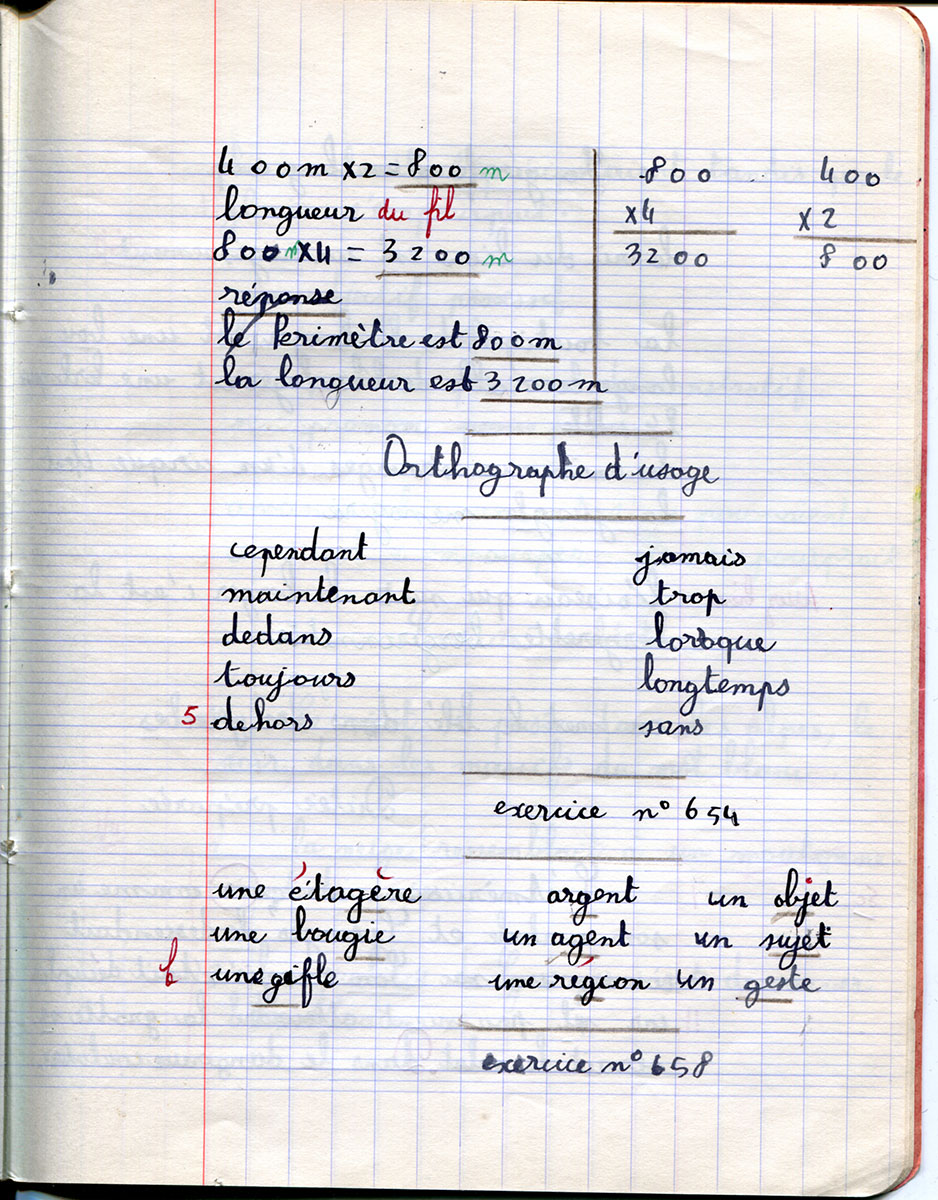 400m x2 = 800 m
longueur du fil
800m x4 = 3200 m
réponse
le Perimètre est 800m
la longueur est 3200m
800 400
x4 x2
3200 800
Orthographe d'usage
cependant jamais
maintenant trop
dedans lorsque
toujours longtemps
5 dehors sans
exercice n° 654
une étagère argent un objet
une bougie un agent un sujet
une gifle une région un geste
exercice n° 658